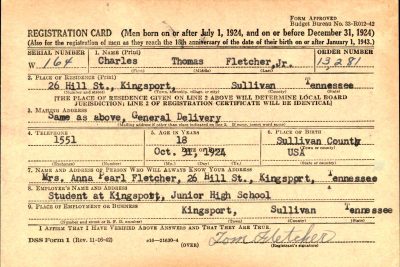 Form Approved
Budget Bureau No. 33-R012-42
REGISTRATION CARD (Men born on or after July 1, 1924, and on or before December 31, 1924)
(Also for the registration of men as they reach the 18th anniversary of the date of their birth on or after January 1, 1943.)
SERIAL NUMBER 1. NAME (Print) ORDER NUMBER
W 164 Charles Thomas Fletcher, Jr. 13281
(First) (Middle) (Last)
2. PLACE OF RESIDENCE (Print)
26 Hill St., Kingsport, Sullivan Tennessee
(Number and street) (Town, township, village, or city) (County) (State)
[THE PLACE OF RESIDENCE GIVEN ON LINE 2 ABOVE WILL DETERMINE LOCAL BOARD
JURISDICTION; LINE 2 OF REGISTRATION CERTIFICATE WILL BE IDENTICAL]
3. MAILING ADDRESS
Same as above, General Delivery
[Mailing address if other than place indicated on line 2. If same, insert word same]
4. TELEPHONE 5. AGE IN YEARS 6. PLACE OF BIRTH
1551 18 Sullivan County
DATE OF BIRTH (Town or county)
Oct. 31, 1924 USA
(Exchange) (Number) (Mo.) (Day) (Yr.) (State or country)
7. NAME AND ADDRESS OF PERSON WHO WILL ALWAYS KNOW YOUR ADDRESS
Mrs. Anna Pearl Fletcher, 26 Hill St., Kingsport, Tennessee
8. EMPLOYER'S NAME AND ADDRESS
Student at Kingsport, Junior High School
9. PLACE OF EMPLOYMENT OR BUSINESS
Kingsport, Sullivan Tennessee
(Number and street or R. F. D. number) (Town) (County) (State)
I AFFIRM THAT I HAVE VERIFIED ABOVE ANSWERS AND THAT THEY ARE TRUE.
DSS Form 1 (Rev. 11-16-42) (OVER) Tom Fletcher
(Registrant's signature)